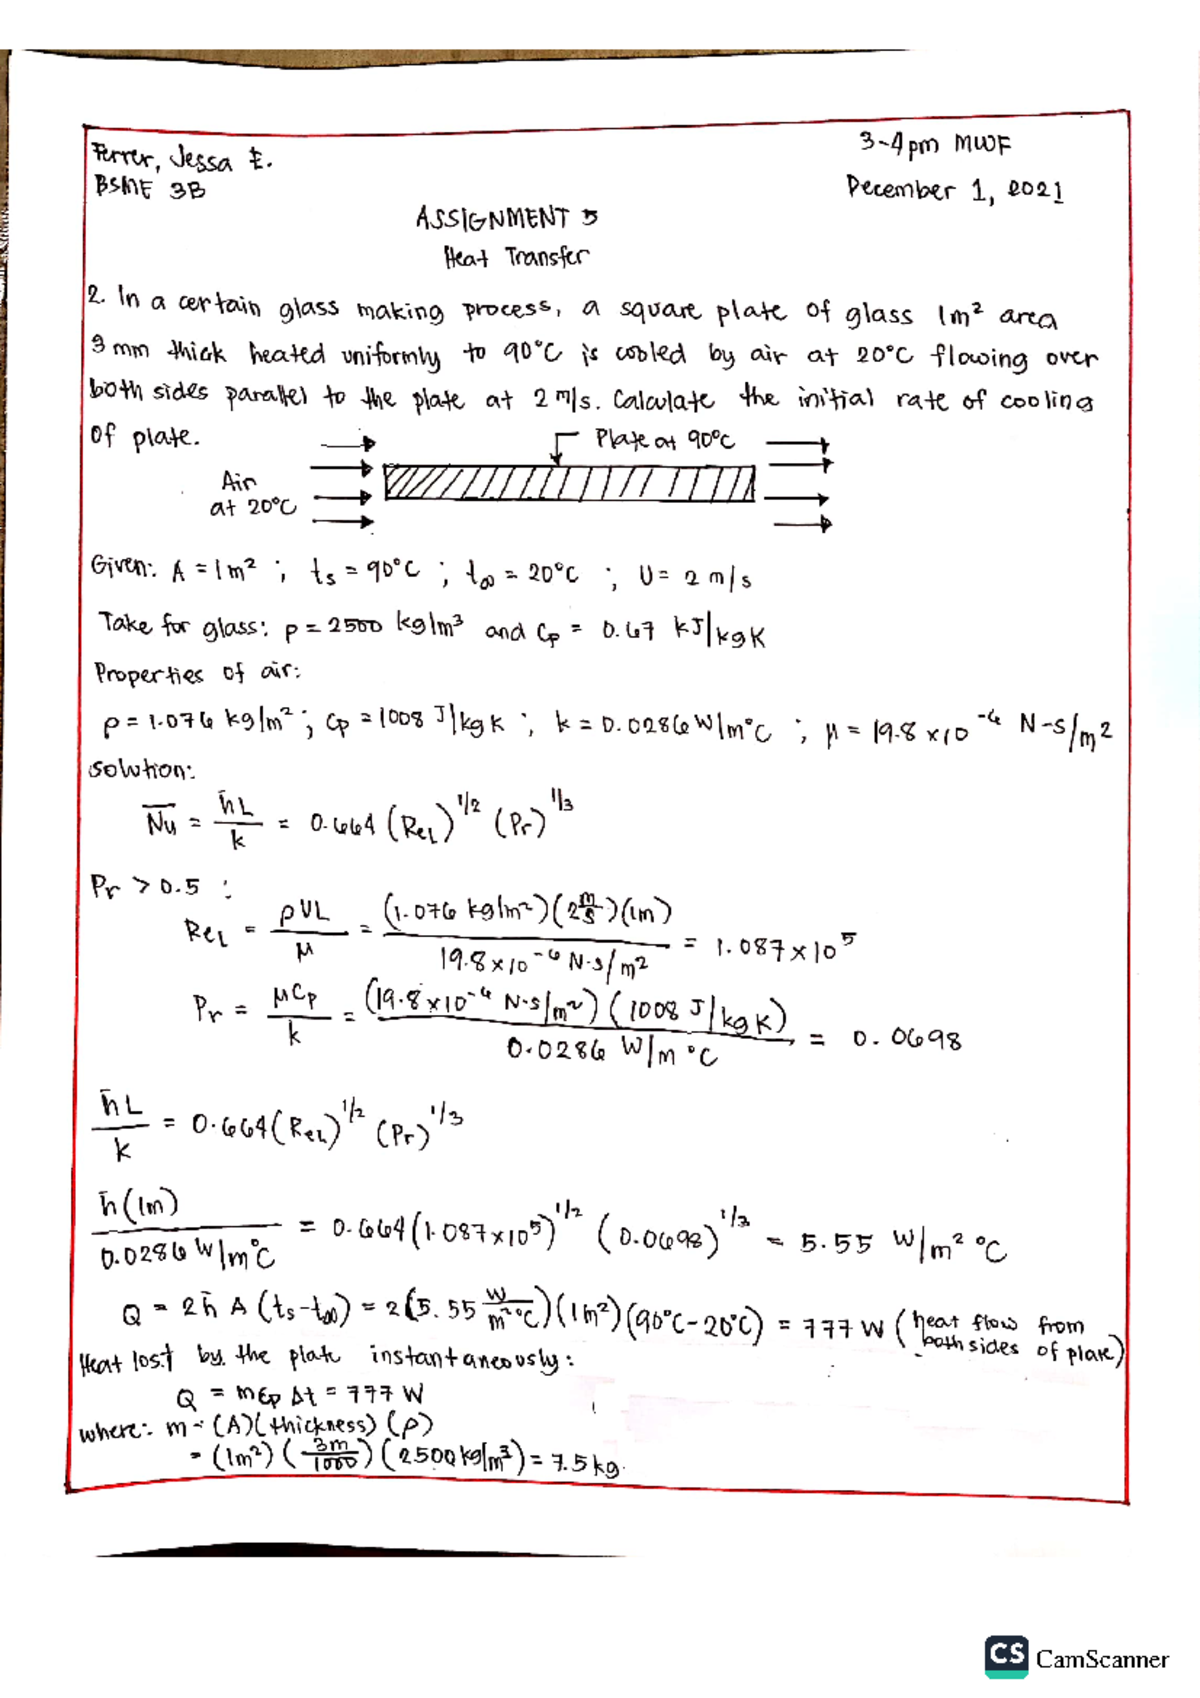 Ferrer, Jessa E.
3-4pm MWF
BSME 3B
December 1, 2021
ASSIGNMENT 5
Heat Transfer
2. In a certain glass making process, a square plate of glass 1m² area
3 mm thick heated uniformly to 90°C is cooled by air at 20°C flowing over
both sides parallel to the plate at 2 m/s. Calculate the initial rate of cooling
of plate.
Plate at 90°C
Air
at 20°C
Given: A = 1m² ; ts = 90°C ; t∞ = 20°C ; U = 2 m/s
Take for glass: ρ = 2500 kg/m³ and Cp = 0.67 kJ/kgK
Properties of air:
ρ = 1.076 kg/m² ; Cp = 1008 J/kg K ; k = 0.0286 W/m°C ; μ = 19.8 x10⁻⁶ N-s/m²
solution:
N̄u = h̄L/k = 0.664 (ReL)^1/2 (Pr)^1/3
Pr > 0.5 :
ReL = ρUL/μ = (1.076 kg/m²)(2 m/s)(1m) / 19.8x10⁻⁶ N-s/m² = 1.087 x 10⁵
Pr = μCp/k = (19.8x10⁻⁶ N-s/m²)(1008 J/kg K) / 0.0286 W/m °C = 0.0698
h̄L/k = 0.664(ReL)^1/2 (Pr)^1/3
h̄(1m) / 0.0286 W/m°C = 0.664(1.087x10⁵)^1/2 (0.0698)^1/3 = 5.55 W/m² °C
Q = 2h̄ A (ts-t∞) = 2(5.55 W/m²°C)(1m²)(90°C-20°C) = 777 W (heat flow from both sides of plate)
Heat lost by the plate instantaneously:
Q = mCp Δt = 777 W
where: m = (A)(thickness)(ρ)
= (1m²)(3m/1000)(2500kg/m³) = 7.5 kg.
CS CamScanner